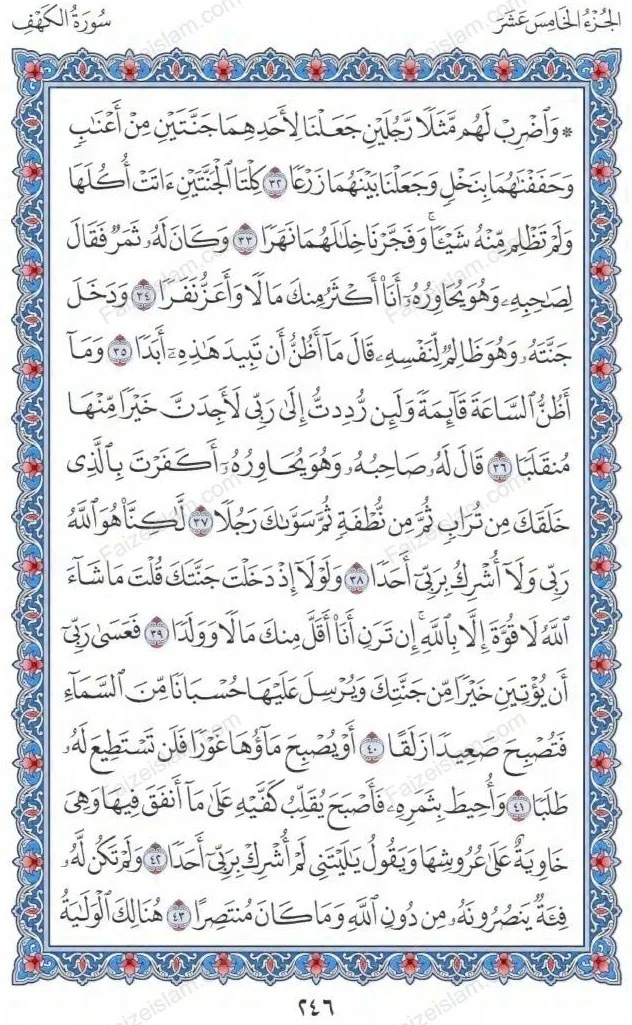 الجزء الخامس عشر
سورة الكهف
* وَٱضْرِبْ لَهُم مَّثَلًا رَّجُلَيْنِ جَعَلْنَا لِأَحَدِهِمَا جَنَّتَيْنِ مِنْ أَعْنَٰبٍ
وَحَفَفْنَٰهُمَا بِنَخْلٍ وَجَعَلْنَا بَيْنَهُمَا زَرْعًا ٣٢ كِلْتَا ٱلْجَنَّتَيْنِ ءَاتَتْ أُكُلَهَا
وَلَمْ تَظْلِم مِّنْهُ شَيْـًٔا ۚ وَفَجَّرْنَا خِلَٰلَهُمَا نَهَرًا ٣٣ وَكَانَ لَهُۥ ثَمَرٌ فَقَالَ
لِصَٰحِبِهِۦ وَهُوَ يُحَاوِرُهُۥٓ أَنَا۠ أَكْثَرُ مِنكَ مَالًا وَأَعَزُّ نَفَرًا ٣٤ وَدَخَلَ
جَنَّتَهُۥ وَهُوَ ظَالِمٌ لِّنَفْسِهِۦ قَالَ مَآ أَظُنُّ أَن تَبِيدَ هَٰذِهِۦٓ أَبَدًا ٣٥ وَمَآ
أَظُنُّ ٱلسَّاعَةَ قَآئِمَةً وَلَئِن رُّدِدتُّ إِلَىٰ رَبِّى لَأَجِدَنَّ خَيْرًا مِّنْهَا
مُنقَلَبًا ٣٦ قَالَ لَهُۥ صَاحِبُهُۥ وَهُوَ يُحَاوِرُهُۥٓ أَكَفَرْتَ بِٱلَّذِى
خَلَقَكَ مِن تُرَابٍ ثُمَّ مِن نُّطْفَةٍ ثُمَّ سَوَّىٰكَ رَجُلًا ٣٧ لَّٰكِنَّا۠ هُوَ ٱللَّهُ
رَبِّى وَلَآ أُشْرِكُ بِرَبِّىٓ أَحَدًا ٣٨ وَلَوْلَآ إِذْ دَخَلْتَ جَنَّتَكَ قُلْتَ مَا شَآءَ
ٱللَّهُ لَا قُوَّةَ إِلَّا بِٱللَّهِ ۚ إِن تَرَنِ أَنَا۠ أَقَلَّ مِنكَ مَالًا وَوَلَدًا ٣٩ فَعَسَىٰ رَبِّىٓ
أَن يُؤْتِيَنِ خَيْرًا مِّن جَنَّتِكَ وَيُرْسِلَ عَلَيْهَا حُسْبَانًا مِّنَ ٱلسَّمَآءِ
فَتُصْبِحَ صَعِيدًا زَلَقًا ٤٠ أَوْ يُصْبِحَ مَآؤُهَا غَوْرًا فَلَن تَسْتَطِيعَ لَهُۥ
طَلَبًا ٤١ وَأُحِيطَ بِثَمَرِهِۦ فَأَصْبَحَ يُقَلِّبُ كَفَّيْهِ عَلَىٰ مَآ أَنفَقَ فِيهَا وَهِىَ
خَاوِيَةٌ عَلَىٰ عُرُوشِهَا وَيَقُولُ يَٰلَيْتَنِى لَمْ أُشْرِكْ بِرَبِّىٓ أَحَدًا ٤٢ وَلَمْ تَكُن لَّهُۥ
فِئَةٌ يَنصُرُونَهُۥ مِن دُونِ ٱللَّهِ وَمَا كَانَ مُنتَصِرًا ٤٣ هُنَالِكَ ٱلْوَلَٰيَةُ
٢٤٦
Faizeislam.com